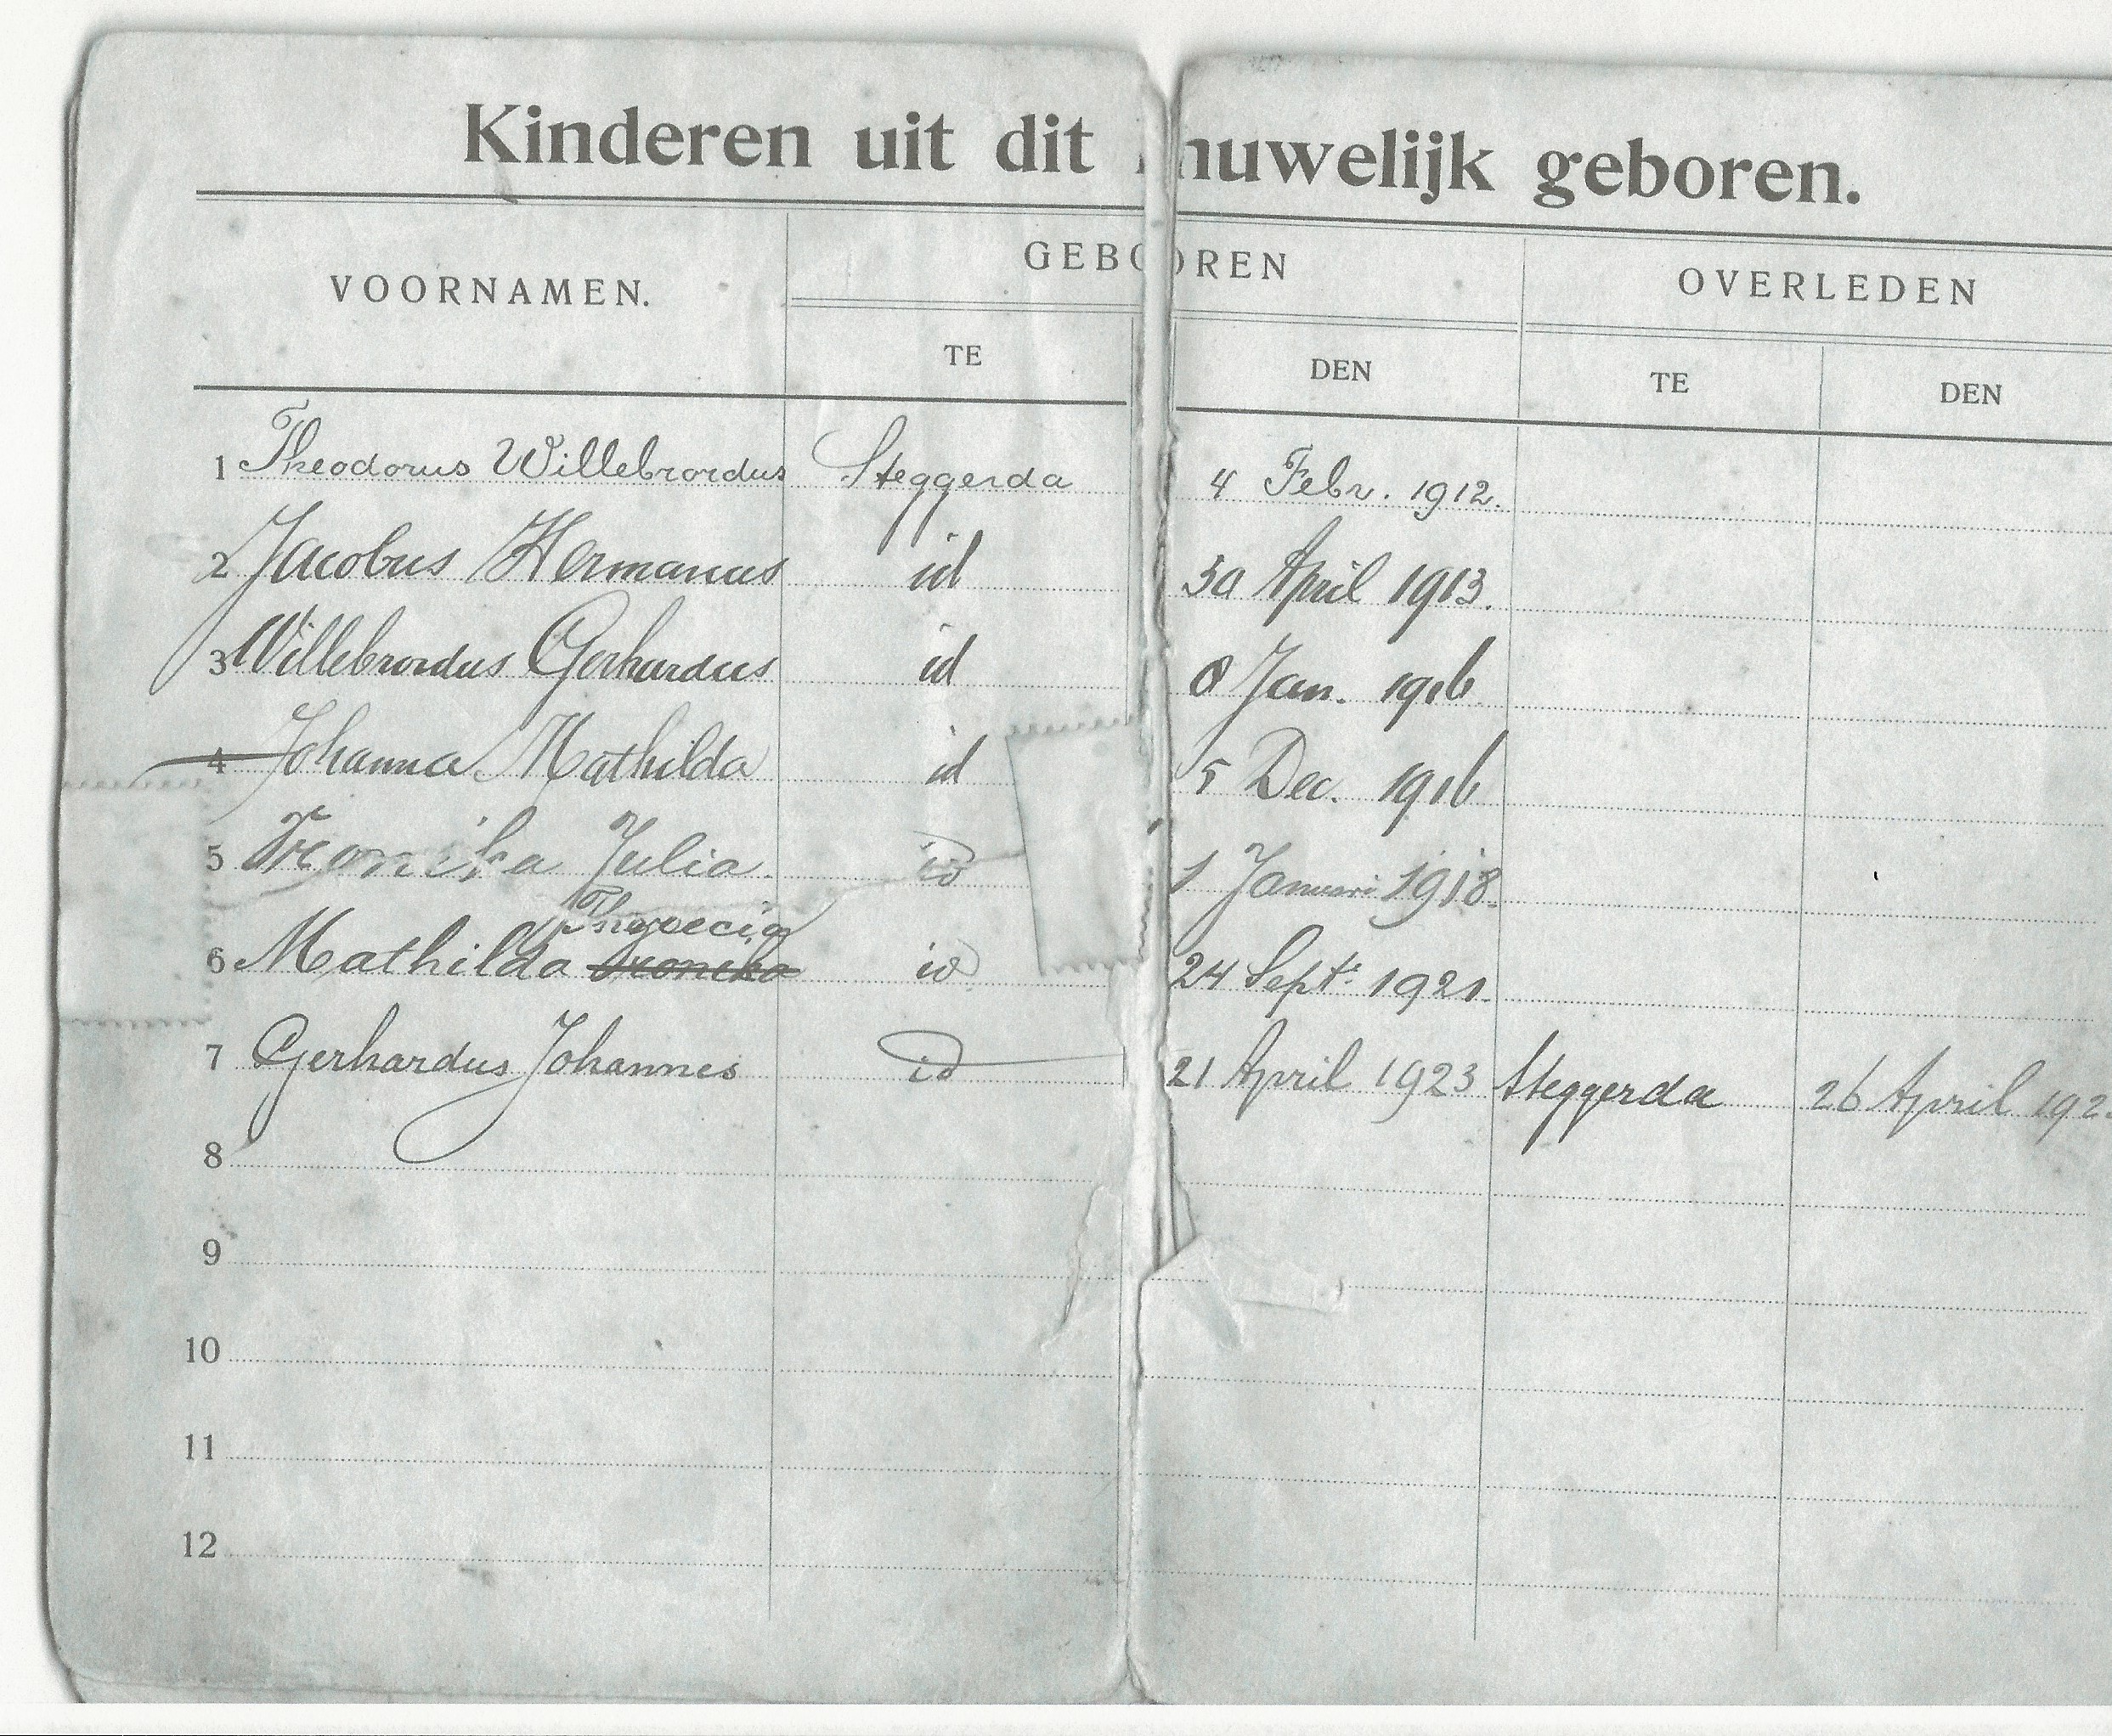 Kinderen uit dit huwelijk geboren.
VOORNAMEN. GEBOREN OVERLEDEN
TE DEN TE DEN
1 Theodorus Willebrordus Steggerda 4 Febr. 1912.
2 Jacobus Hermanus id 30 April 1913.
3 Willebrordus Gerhardus id 8 Jan. 1916
4 Johanna Mathilda id 5 Dec. 1916
5 Julia. id 1 Januari 1918.
6 Mathilda id 24 Sept. 1921.
7 Gerhardus Johannes id 21 April 1923 Steggerda 26 April 192
8
9
10
11
12